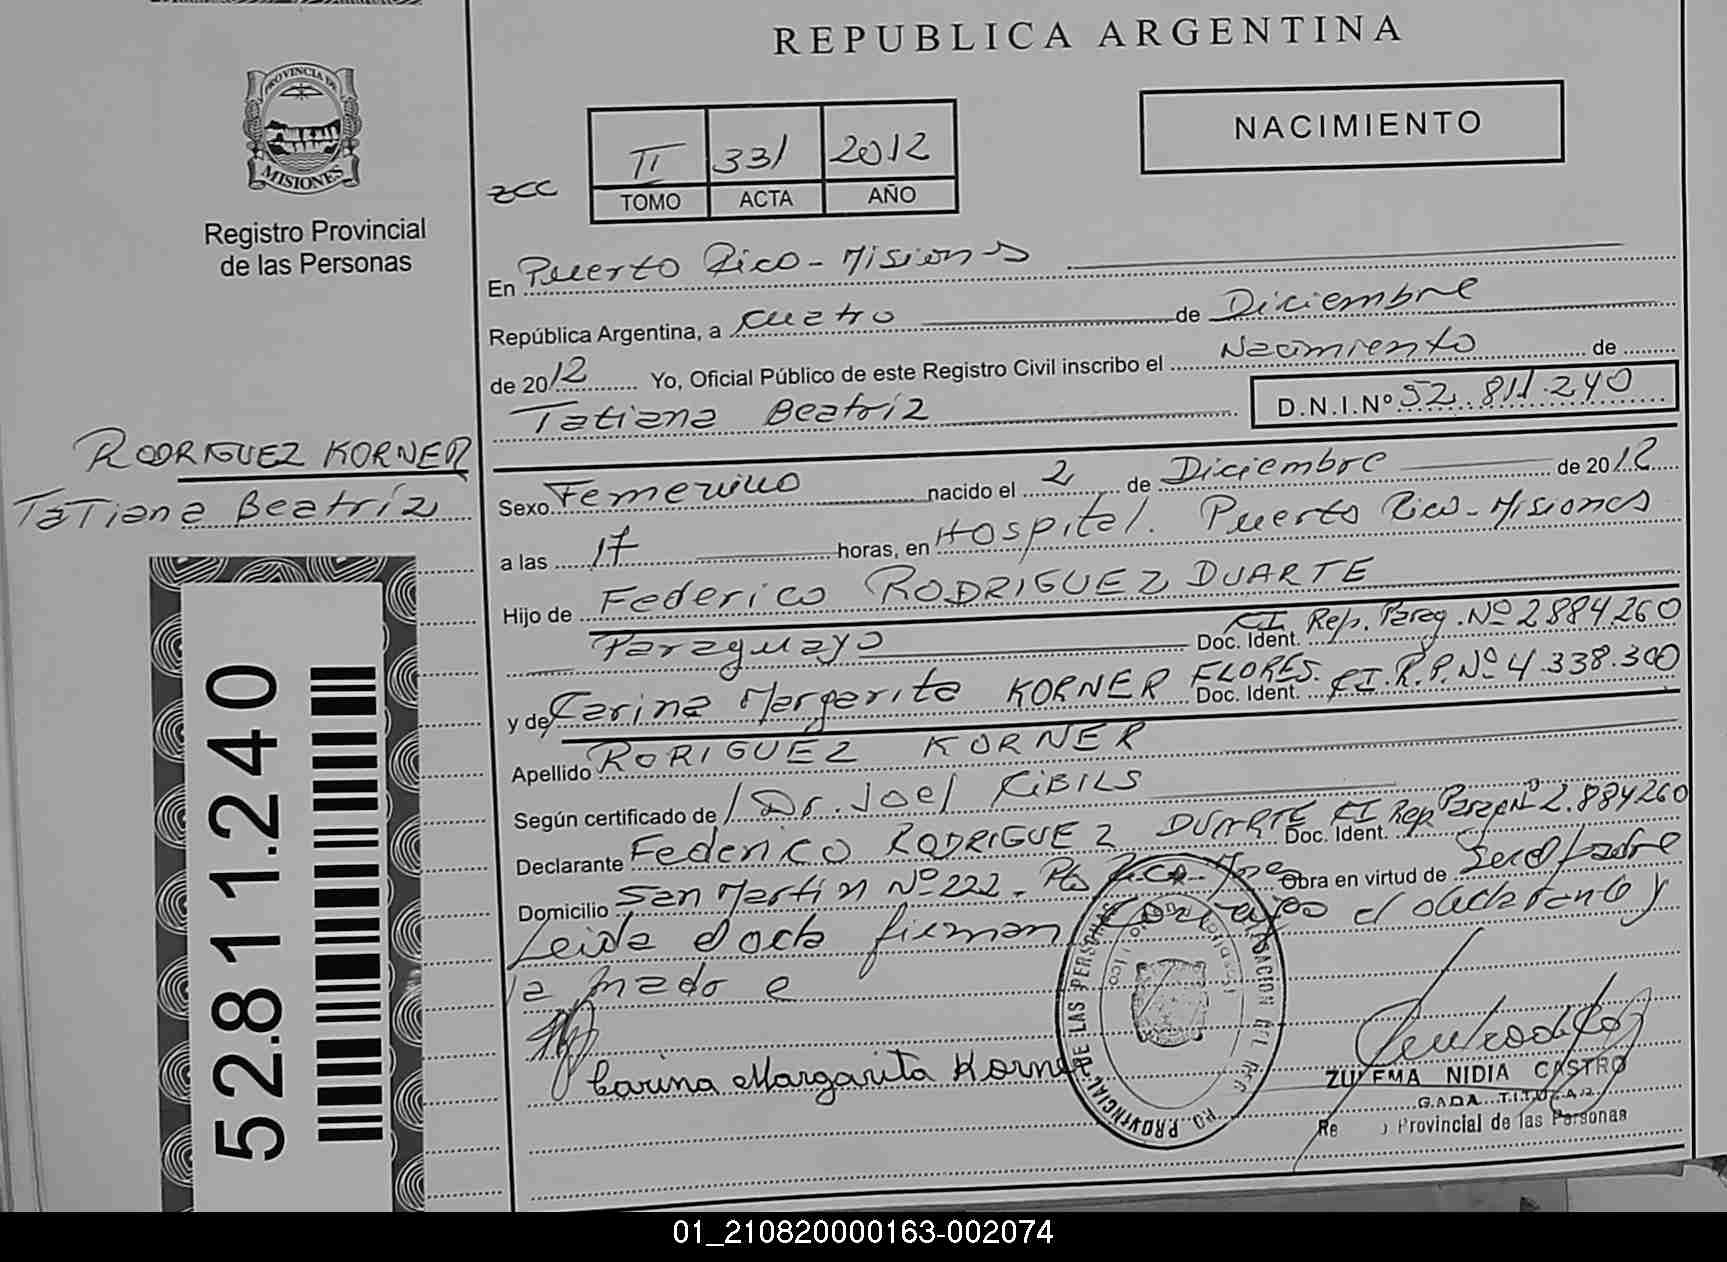 REPUBLICA ARGENTINA
PROVINCIA DE
MISIONES
Registro Provincial
de las Personas
NACIMIENTO
II 331 2012
TOMO ACTA AÑO
En Puerto Rico - Misiones
República Argentina, a cuatro de Diciembre
de 2012 Yo, Oficial Público de este Registro Civil inscribo el Nacimiento de
Tatiana Beatriz D.N.I.Nº 52.811.240
RODRIGUEZ KORNER
Tatiana Beatríz
Sexo Femenino nacido el 2 de Diciembre de 2012
a las 17 horas, en Hospital. Puerto Rico - Misiones
Hijo de Federico RODRIGUEZ DUARTE
Paraguayo Doc. Ident. CI Rep. Parag. Nº 2884.260
y de Carina Margarita KORNER FLORES. Doc. Ident. CI. R.P. Nº 4.338.300
Apellido RORIGUEZ KORNER
Según certificado de Dr. Joel CIBILS
Declarante Federico RODRIGUEZ DUARTE Doc. Ident. CI Rep Parag Nº 2.884260
Domicilio San Martin Nº 222. Pto Rico - Mnes Obra en virtud de ser el padre
Leida el acta firman conmigo el declarante y
la madre
Carina Margarita Korner
ZULEMA NIDIA CASTRO
Provincial de las Personas
52.811.240
01_210820000163-002074